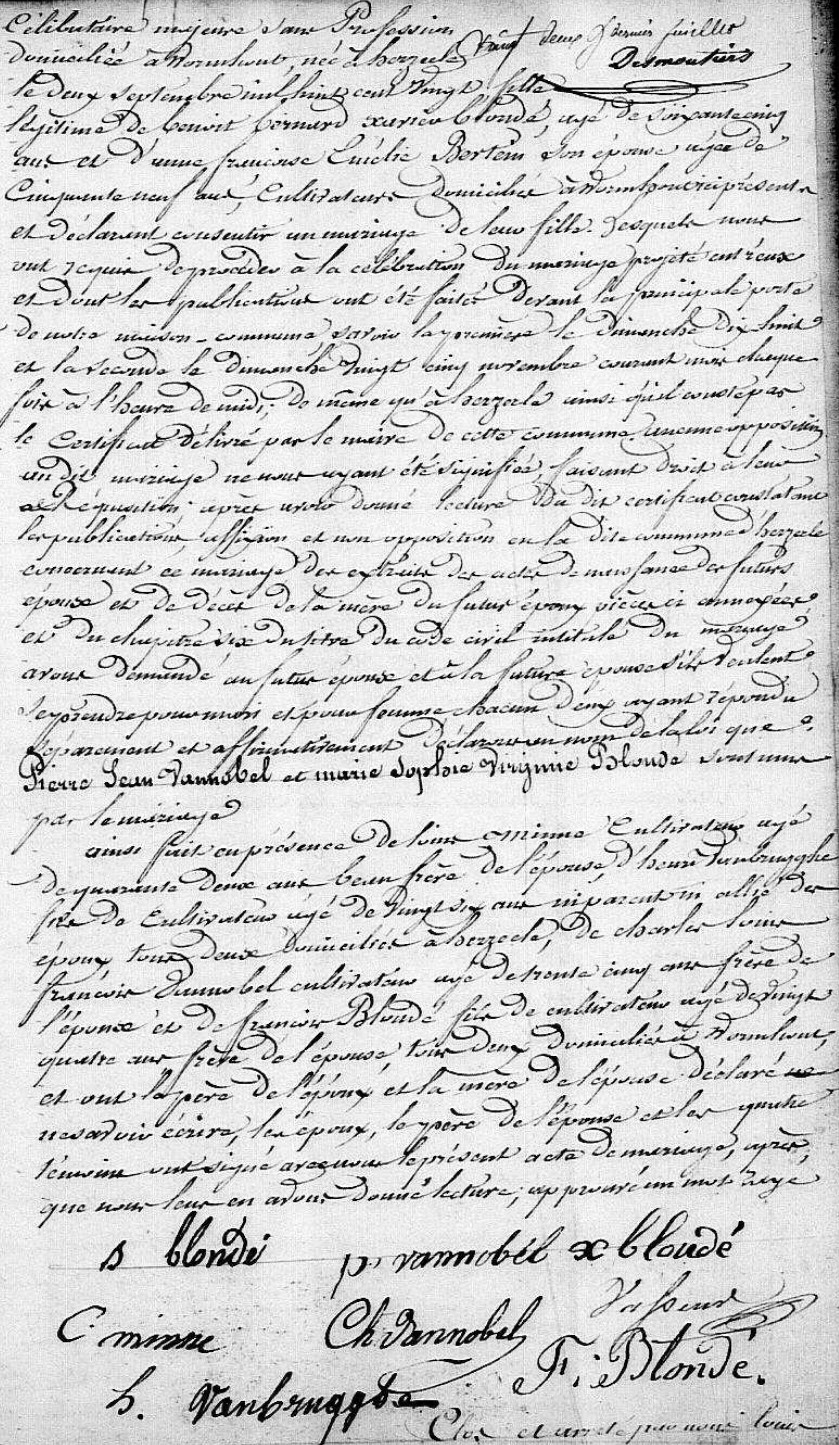 Célibataire majeure sans Profession
domiciliée à Wormhout, née à herzeele
vingt deux & dernier feuillet
Desmoutiers
le deux septembre mil huit cent vingt fille
légitime de benoit bernard xavier blondé, agé de soixante cinq
ans et d'anne francoise Emélie Bertein son épouse agée de
Cinquante neuf ans, Cultivateurs domiciliés à Wormhout ici présents
et déclarent consentir au mariage de leur fille. Lesquels nous
ont requis de procéder à la célébration du mariage projeté entr'eux
et dont les publications ont été faites devant la principale porte
de notre maison-commune, savoir la première le dimanche dix huit
et la seconde le dimanche vingt cinq novembre courant mois chaque
fois à l'heure de midi; de même qu'à herzeele ainsi qu'il conste par
le Certificat délivré par le maire de cette commune, aucune opposition
au dit mariage ne nous ayant été signifiée, faisant droit à leur
réquisition; après avoir donné lecture du dit certificat constatant
les publications, affixion et non opposition en la dite commune d'herzeele
concernant ce mariage des extraits des actes de naissance des futurs
époux et de décès de la mère du futur époux pièces ci annexées
et du chapitre six du titre du code civil intitulé du mariage
avons demandé au futur époux et à la future épouse s'ils veulent
se prendre pour mari et pour femme chacun d'eux ayant répondu
séparément et affirmativement déclarons au nom de la loi que
Pierre Jean Vannobel et marie Sophie Virginie Blondé sont unis
par le mariage
ainsi fait en présence de louis minne Cultivateur agé
de quarante deux ans beau frère de l'épouse, d'henri Vanbrugghe
fils de Cultivateur agé de vingt six ans ni parent ni allié des
époux tous deux domiciliés à herzeele, de charles louis
francois Vannobel cultivateur agé de trente cinq ans frère de
l'époux et de francois Blondé fils de cultivateur agé de vingt
quatre ans frère de l'épouse tous deux domiciliés à Wormhout,
et ont le père de l'époux et la mère de l'épouse déclaré
ne savoir écrire, les époux, le père de l'épouse et les quatre
témoins ont signé avec nous le présent acte de mariage, après
que nous leur en avons donné lecture; approuvé un mot rayé
s blondé p. vannobel x blondé
C minne Ch Vannobel Vasseur
F. Blondé.
h. Vanbrugghe
Clos et arrêté par nous louis